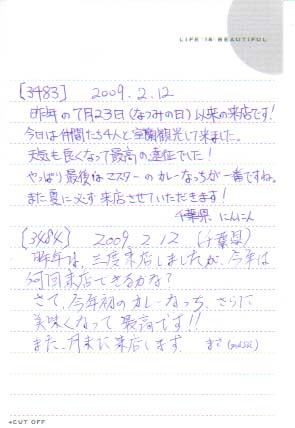 LIFE IS BEAUTIFUL
[3483] 2009.2.12
昨年の7月23日(なつみの日)以来の来店です!
今日は仲間たち4人と室蘭観光して来ました。
天気も良くなって最高の
やっぱり最後はマスターのカレーなっちが一番ですね。
また夏に必ず来店させていただきます!
千葉県 にんにん
[3484] 2009.2.12 (千葉県)
昨年は、三度来店しましたが、今年は
何回来店できるかな?
さて、今年初のカレーなっち、さらに
美味くなって最高です!!
また、月末に来店します
CUT OFF